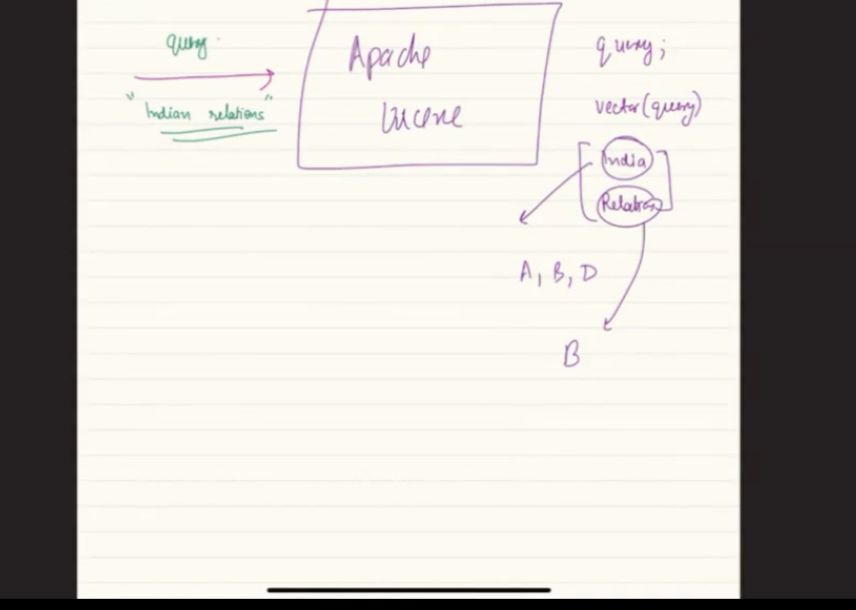 query
"Indian relations"
Apache
Lucene
query;
vector(query)
India
Relation
A, B, D
B